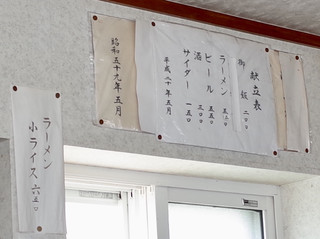 献立表
御飯 二〇〇
ラーメン 五五〇
ビール 五五〇
酒 三〇〇
サイダー 一五〇
平成二十年五月
昭和五十九年五月
ラーメン
小ライス 六五〇